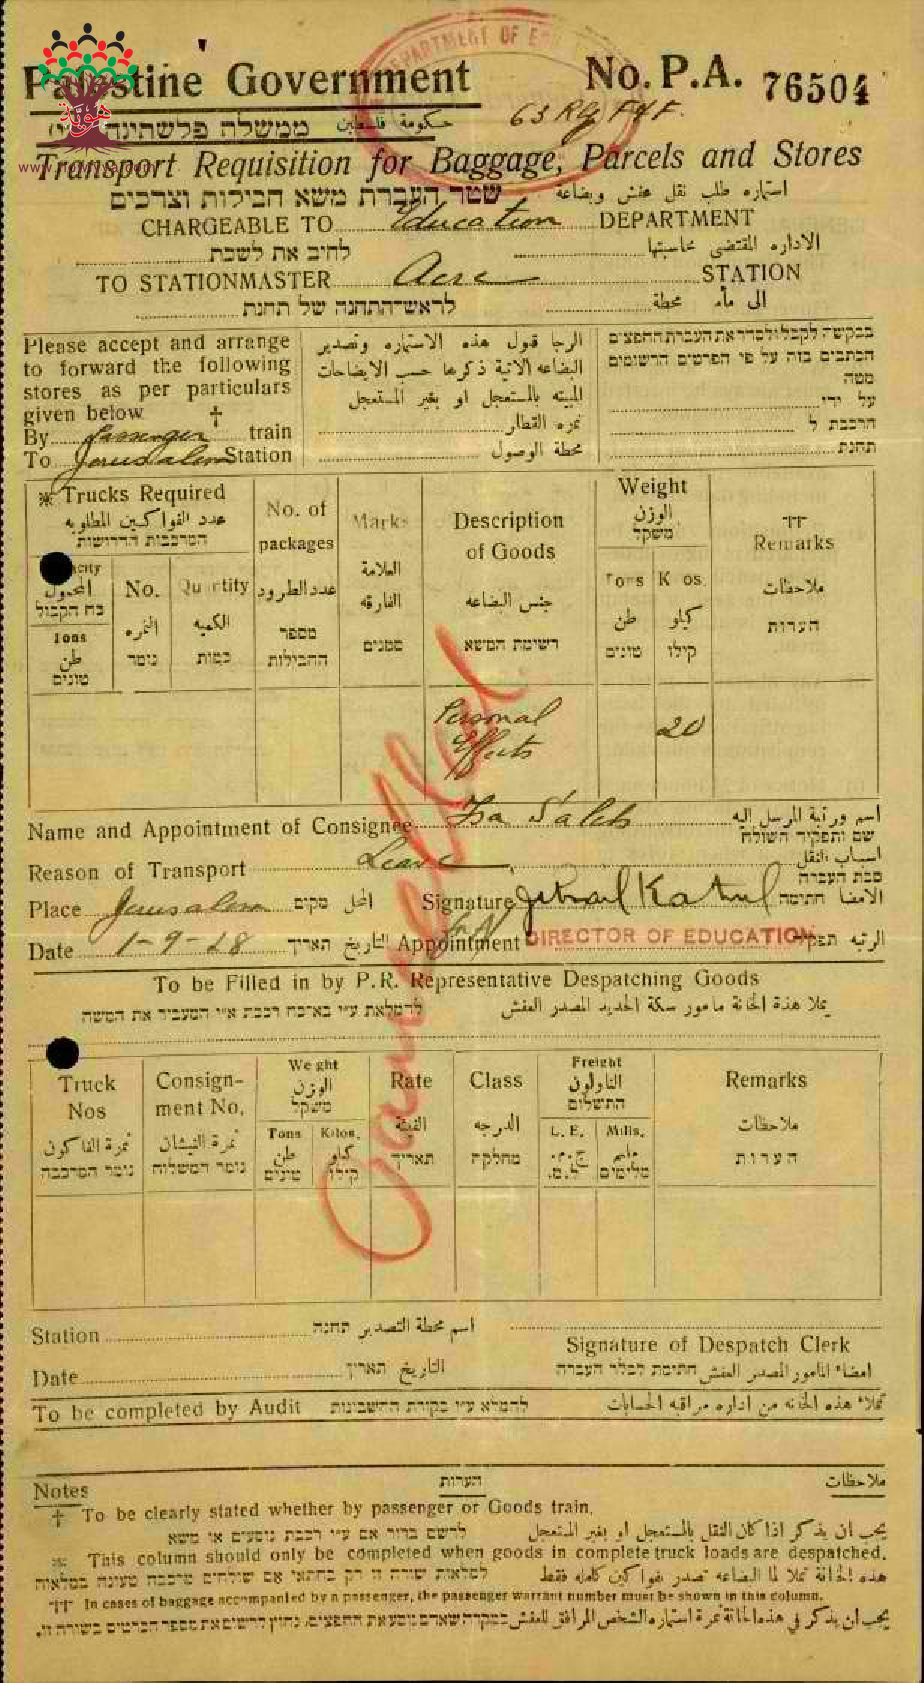 DEPARTMENT OF
Palestine Government No. P.A. 76504
ממשלת פלשתינה (א״י) حكومة فلسطين
63 Reg
www.howiyya.com
Transport Requisition for Baggage, Parcels and Stores
שטר העברת משא חבילות וצרכים استماره طلب نقل عفش وبضاعة
CHARGEABLE TO Education DEPARTMENT
לחיב את לשכת الاداره المقتضى محاسبتها
TO STATIONMASTER Acre STATION
לראש־התחנה של תחנת الى مأمور محطة
Please accept and arrange
to forward the following
stores as per particulars
given below †
By passenger train
To Jerusalem Station
الرجا قبول هذه الاستماره وتصدير
البضاعه الاتية ذكرها حسب الايضاحات
المبينه بالمستعجل او بغير المستعجل
نمره القطار
محطة الوصول
בבקשה לקבל ולסדר את העברת החפצים
הכתבים בזה על פי הפרטים הרשומים
מטה
על ידי
הרכבת ל
תחנת
※ Trucks Required
عدد الفواكين المطلوبه
המרכבות הדרושות
Capacity
המحمول
כח הקבול
Tons
طن
טונים
No.
النمره
נומר
Quantity
الكميه
כמות
No. of
packages
عدد الطرود
מספר
החבילות
Marks
العلامة
الفارقه
סמנים
Description
of Goods
جنس البضاعه
רשימת המשא
Weight
الوزن
משקל
Tons
طن
טונים
Kilos.
كيلو
קילו
††
Remarks
ملاحظات
הערות
Personal
Effects
20
Cancelled
Name and Appointment of Consignee Isa Saleh اسم ورتبة المرسل اليه
שם ותפקיד השולח
Reason of Transport Leave اسباب النقل
סבת העברה
Place Jerusalem מקום المحل Signature Jibrail Katul חתימה الامضا
Date 1-9-28 תאריך التاريخ Appointment for DIRECTOR OF EDUCATION תפקיד الرتبه
To be Filled in by P.R. Representative Despatching Goods
להמלאת ע״י בא־כח רכבת א״י המעביר את המשה يملا هذة الخانة مامور سكة الحديد المصدر العفش
Truck
Nos
نمرة الفاكون
נומר המרכבה
Consign-
ment No.
نمرة النيشان
נומר המשלוח
Weight
الوزن
משקל
Tons
طن
טונים
Kilos.
كيلو
קילו
Rate
الفيئة
תאריך
Class
الدرجه
מחלקת
Freight
الناولون
התשלום
L.E.
ج.م.
ל.מ.
Mills.
مليم
מלימים
Remarks
ملاحظات
הערות
Station תחנה اسم محطة التصدير
Signature of Despatch Clerk
Date תאריך التاريخ חתימת לבלר העברה امضاء المامور المصدر العفش
To be completed by Audit להמלא ע״י בקורת החשבונות تملاء هذه الخانه من اداره مراقبه الحسابات
Notes הערות ملاحظات
† To be clearly stated whether by passenger or Goods train.
לרשם ברור אם ע״י רכבת נוסעים או משא يجب ان يذكر اذا كان النقل بالمستعجل او بغير المستعجل
※ This column should only be completed when goods in complete truck loads are despatched.
למלאות שורה זו רק בתנאי אם שולחים מרכבה טעונה במלואה هذه الخانة تملا لما البضاعه تصدر بفواكين كامله فقط
†† In cases of baggage accompanied by a passenger, the passenger warrant number must be shown in this column.
במקרה שאדם נוסע את החפצים, נחוץ לרשום את מספר הכרטיס בשורה זו. يجب ان يذكر في هذه الخانة نمرة استماره الشخص المرافق للعفش